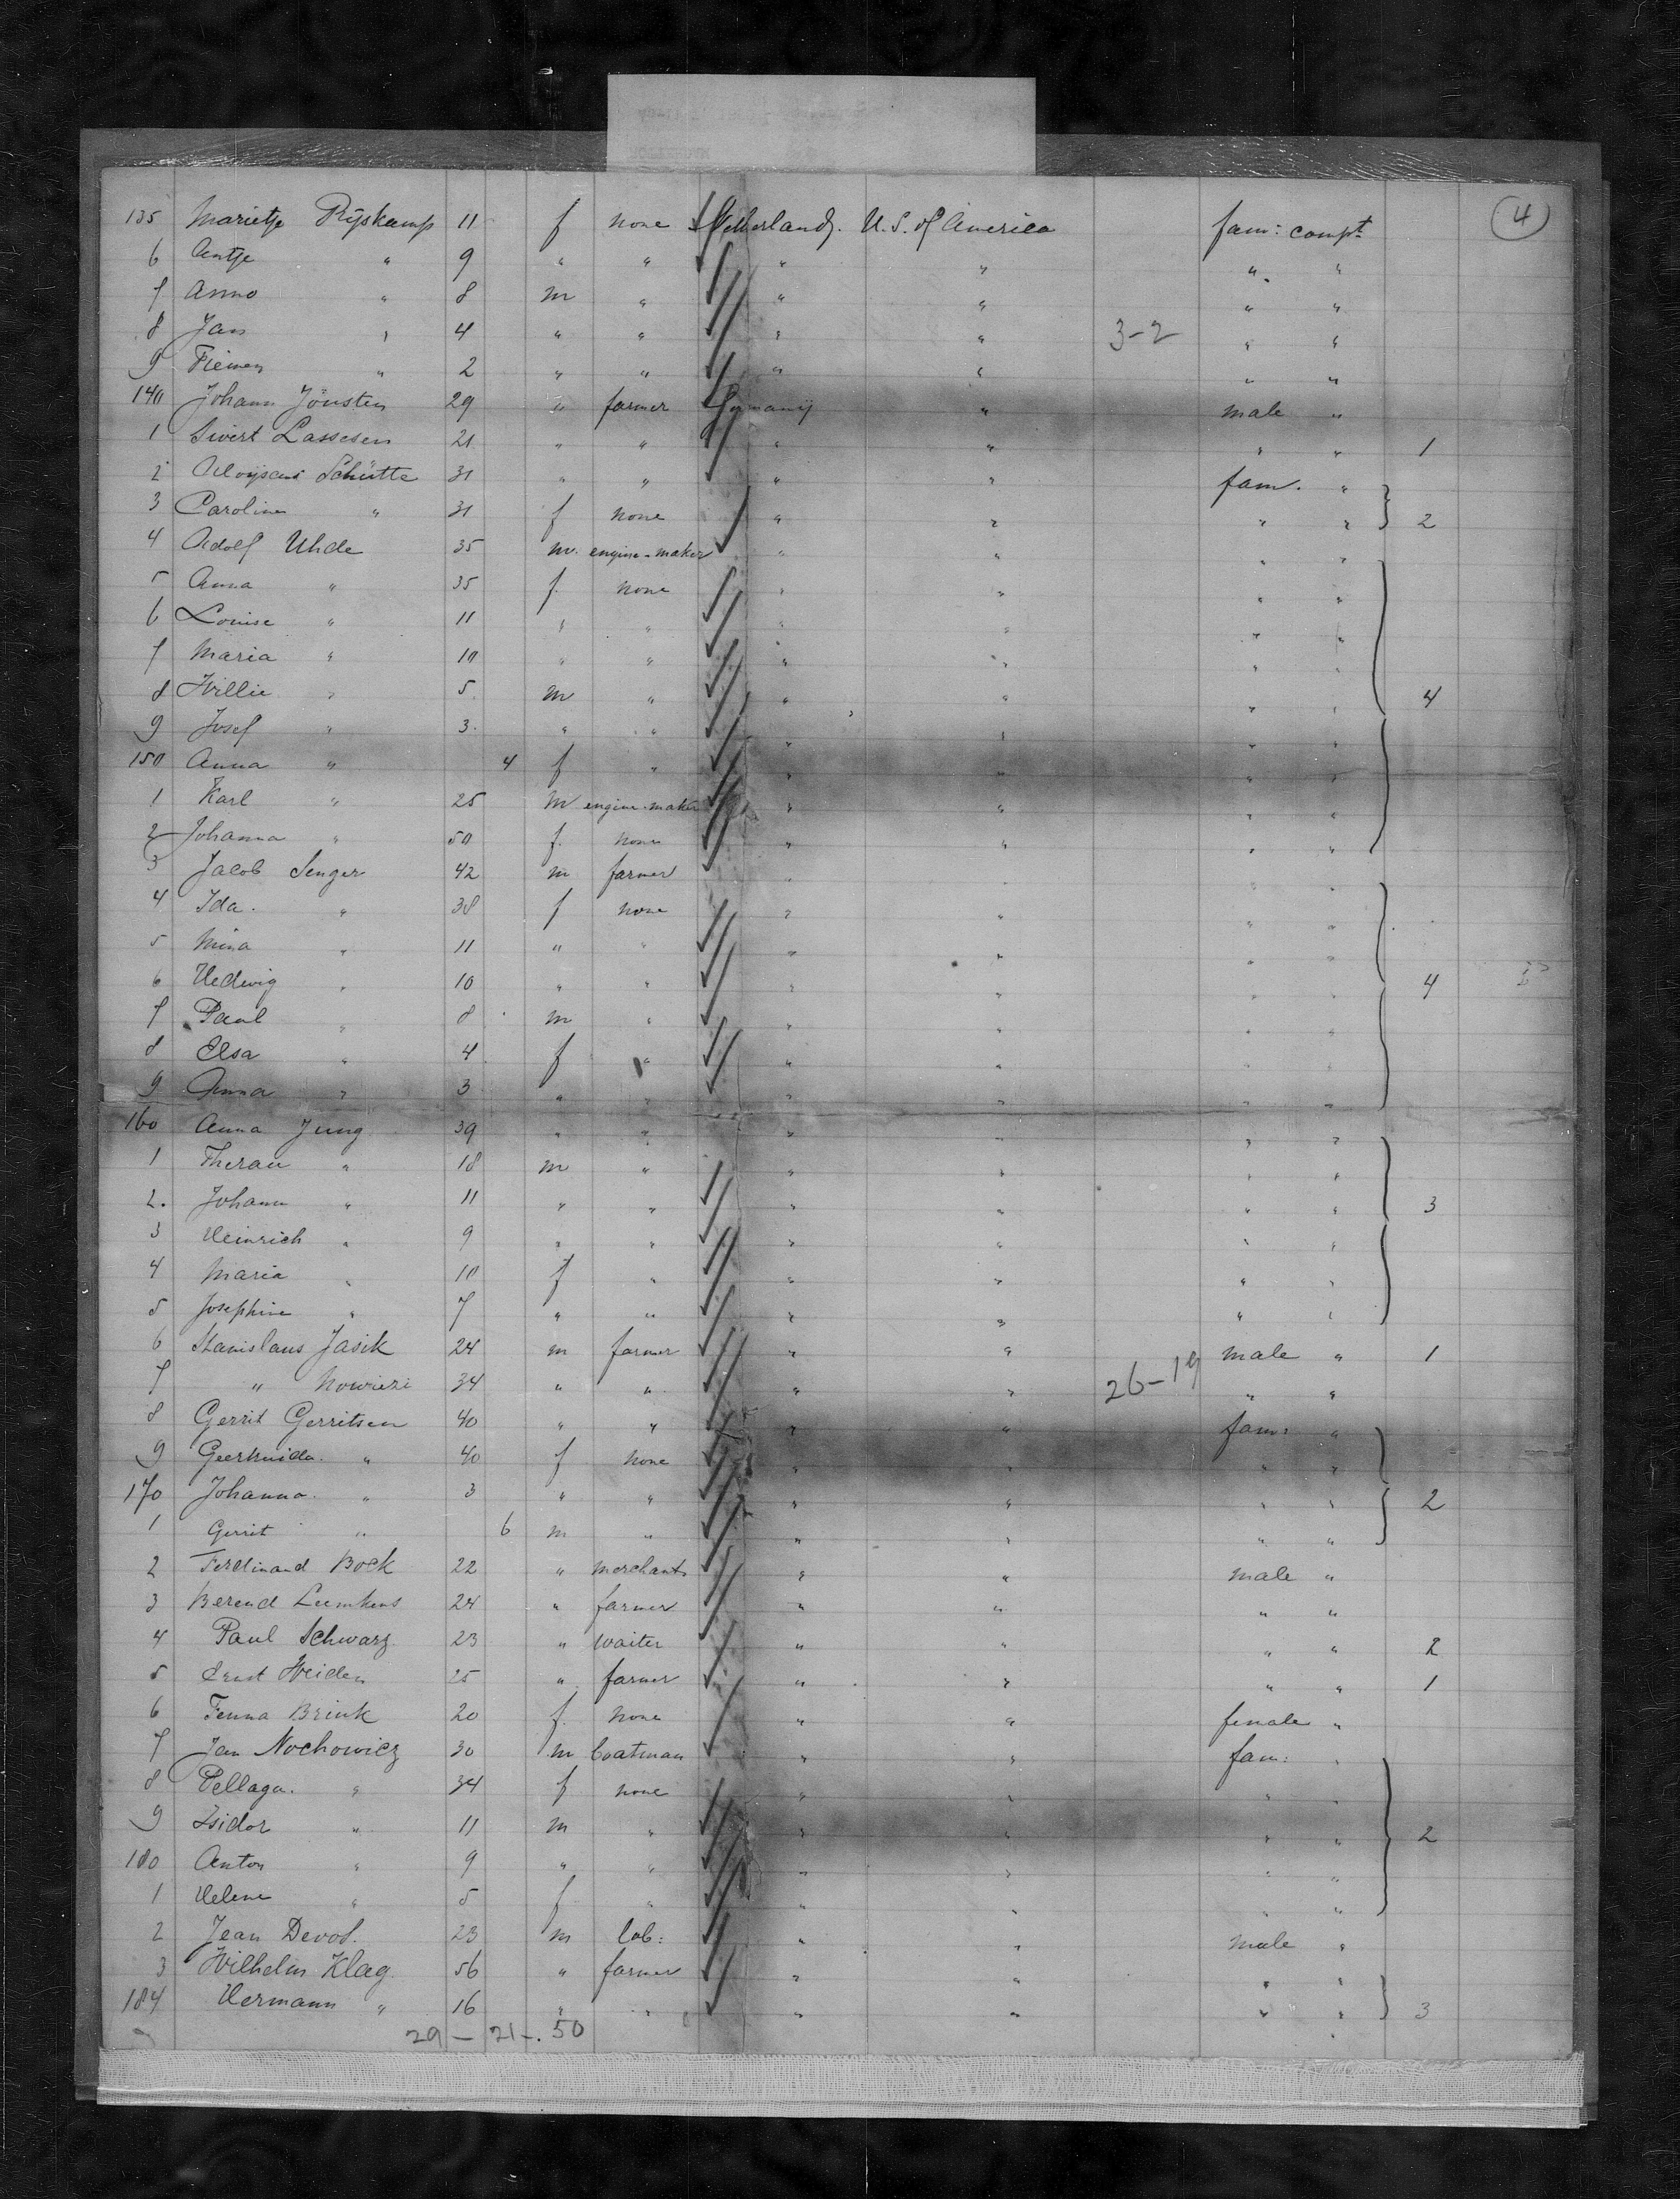 4
135 Marietje Rijskamp 11 f none Netherlands. U. S. of America fam: compt
6 Antje " 9 " " " " " "
7 Anno " 8 m " " " " "
8 Jan " 4 " " " " 3-2 " "
9 Fiemen " 2 " " " " " "
140 Johann Jönsten 29 " farmer Germany " male "
1 Sivert Lassesen 21 " " " " " " 1
2 Schütte 31 " " " " fam. "
3 Caroline " 31 f none " " " " 2
4 Adolf Uhde 35 m. engine-maker " " " "
5 Anna " 35 f. none " " " "
6 Louise " 11 " " " " " "
7 Maria " 10 " " " " " "
8 Willie " 5 m " " " " " 4
9 Josef " 3 " " " " " "
150 Anna " 4 f " " " " "
1 Karl " 25 m engine-maker " " " "
2 Johanna " 50 f. none " " " "
3 Jacob Senger 42 m farmer " " " "
4 Ida. " 38 f none " " " "
5 Mina " 11 " " " " " "
6 Hedwig " 10 " " " " " " 4
7 Paul " 8 m " " " " "
8 Elsa " 4 f " " " " "
9 Anna " 3 " " " " " "
160 Anna Jung 39 " " " " " "
1 " 18 m " " " " "
2. Johann " 11 " " " " " " 3
3 Heinrich " 9 " " " " " "
4 Maria " 10 f " " " " "
5 Josephine " 7 " " " " " "
6 Stanislaus Jasik 24 m farmer " " male " 1
7 " 34 " " " " 26-19 " "
8 Gerrit Gerritsen 40 " " " " fam: "
9 " 40 f none " " " "
170 Johanna. " 3 " " " " " " 2
1 Gerrit " 6 m " " " " "
2 Ferdinand Bock 22 " merchant " " male "
3 Berend 24 " farmer " " " "
4 Paul Schwarz 23 " waiter " " " " 2
5 Ernst Weiden 25 " farmer " " " " 1
6 Fenna Brink 20 f. none " " female "
7 Jan Nochowicz 30 m boatman " " fam: "
8 Pellaga. " 34 f none " " " "
9 Isidor " 11 m " " " " " 2
180 Anton " 9 " " " " " "
1 Helene " 5 f " " " " "
2 Jean Devos. 23 m lab: " " male "
3 Wilhelm Klag 56 " farmer " " " "
184 Hermann " 16 " " " " " " 3
29 - 21 -. 50